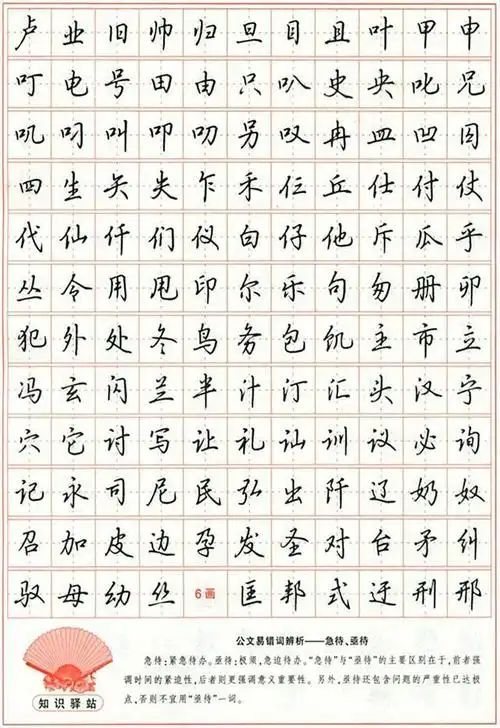 卢业旧帅归旦目且叶甲申
叮电号田由只叭史央叱兄
叽叼叫叩叨另叹冉皿凹囚
四生矢失乍禾仨丘仕付仗
代仙仟们仪白仔他斥瓜乎
丛令用甩印尔乐句匆册卯
犯外处冬鸟务包饥主市立
冯玄闪兰半汁汀汇头汉宁
穴它讨写让礼讪训议必询
记永司尼民弘出阡辽奶奴
召加皮边孕发圣对台矛纠
驭母幼丝6画匡邦式迂刑邢
公文易错词辨析——急待、亟待
急待:紧急待办。亟待:极须,急迫待办。“急待”与“亟待”的主要区别在于,前者强
调时间的紧迫性,后者则更强调意义重要性。另外,亟待还包含问题的严重性已达极
点,否则不宜用“亟待”一词。
知识驿站